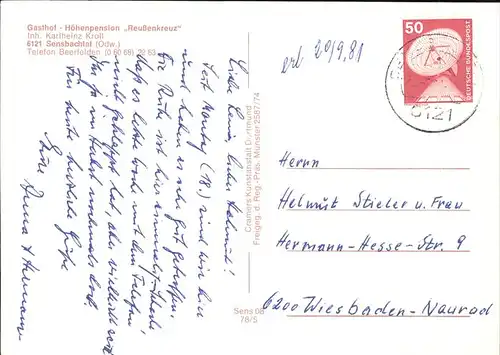 Gasthof - Höhenpension „Reußenkreuz"
Inh. Karlheinz Kroll
6121 Sensbachtal (Odw.)
Telefon Beerfelden (0 60 68) 22 63
erh 20/9.81
50
DEUTSCHE BUNDESPOST
6121
Liebe Leni, lieber Helmut!
Seit Montag (18.) sind wir hier
und haben es sehr gut getroffen.
Die Ruhe ist hier
es letzte Woche mit dem Telefon
nicht geklappt hat, aber vielleicht seid
Ihr im
Für heute herzliche Grüße
Eure
Anna + Hermann
Cramers Kunstanstalt Dortmund
Freigeg. d. Reg.-Präs. Münster 2587/74
Sens 08
78/5
Herrn
Helmut Stieler u. Frau
Hermann-Hesse-Str. 9
6200 Wiesbaden-Naurod